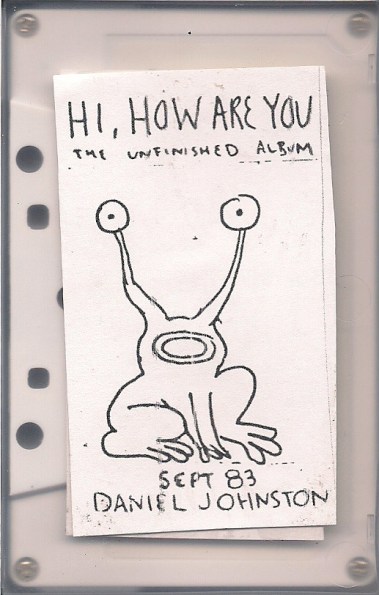 HI, HOW ARE YOU
THE UNFINISHED ALBUM
SEPT 83
DANIEL JOHNSTON